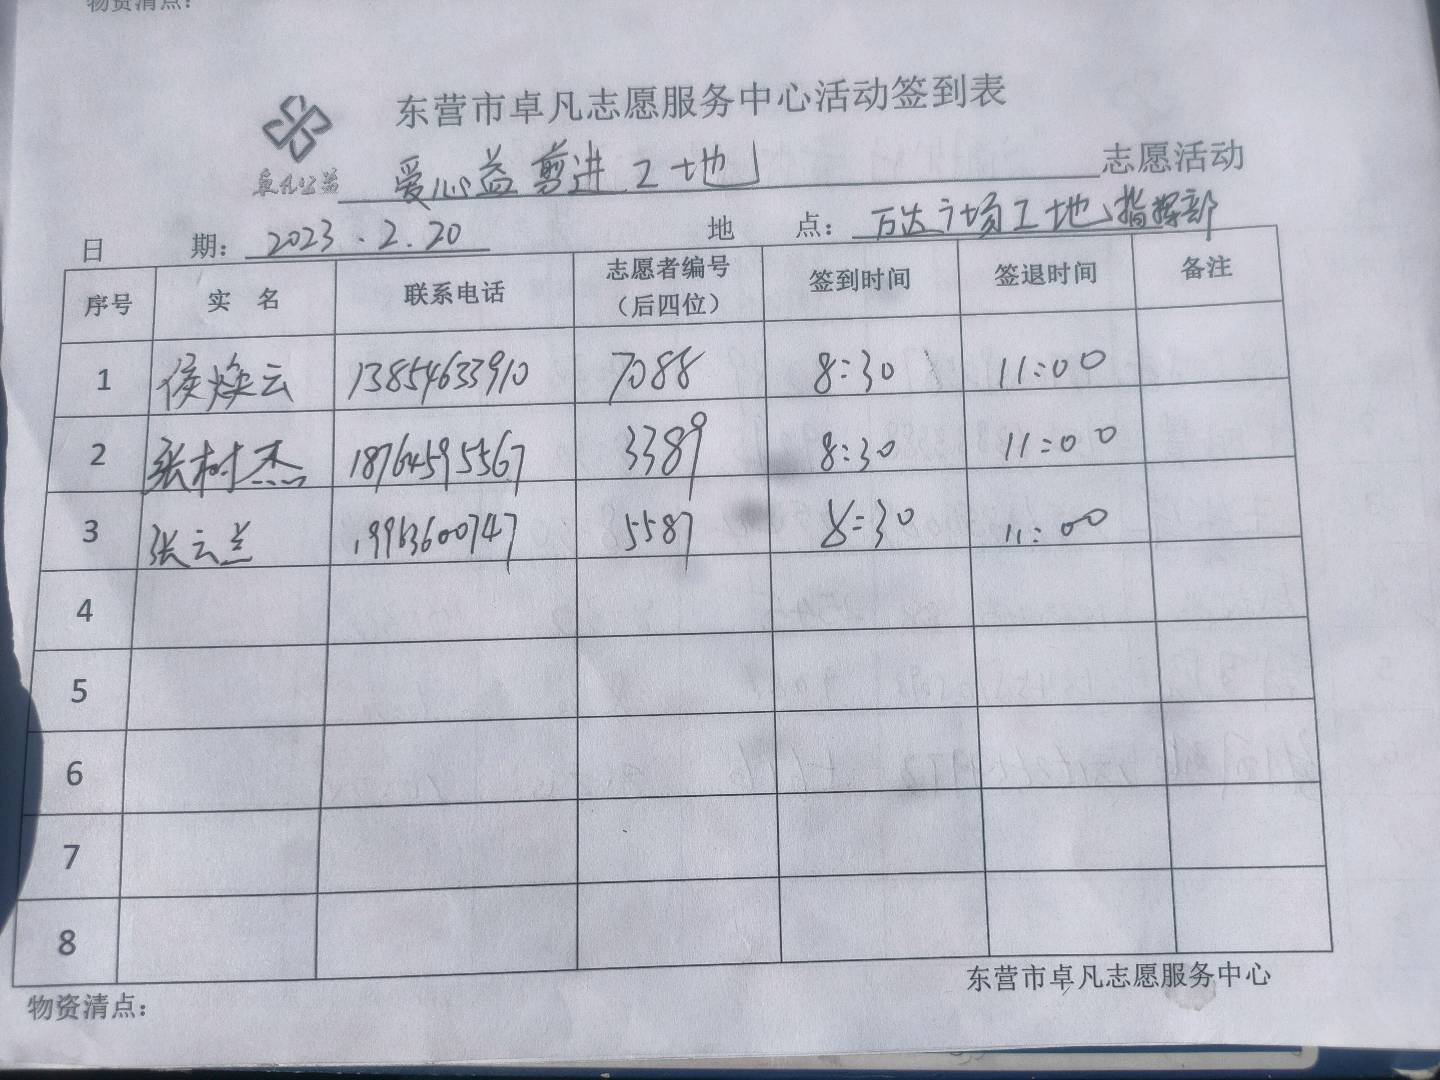 物资清点：
东营市卓凡志愿服务中心活动签到表
卓凡公益 爱心益剪进工地 志愿活动
日 期： 2023.2.20 地 点： 万达广场工地指挥部
序号 实 名 联系电话 志愿者编号（后四位） 签到时间 签退时间 备注
1 侯焕云 13854633910 7088 8:30 11:00
2 张树杰 18764595567 3389 8:30 11:00
3 张云兰 19963600747 5587 8:30 11:00
4
5
6
7
8
东营市卓凡志愿服务中心
物资清点：